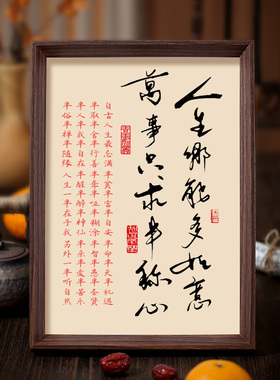 人生哪能多如意
萬事只求半称心
自古人生最忌满半贫半富半自安半命半天半机遇
半取半舍半行善半聋半哑半糊涂半智半愚半圣贤
半人半我半自在半醒半醉半神仙半亲半爱半苦乐
半俗半禅半随缘人生一半在于我另外一半听自然